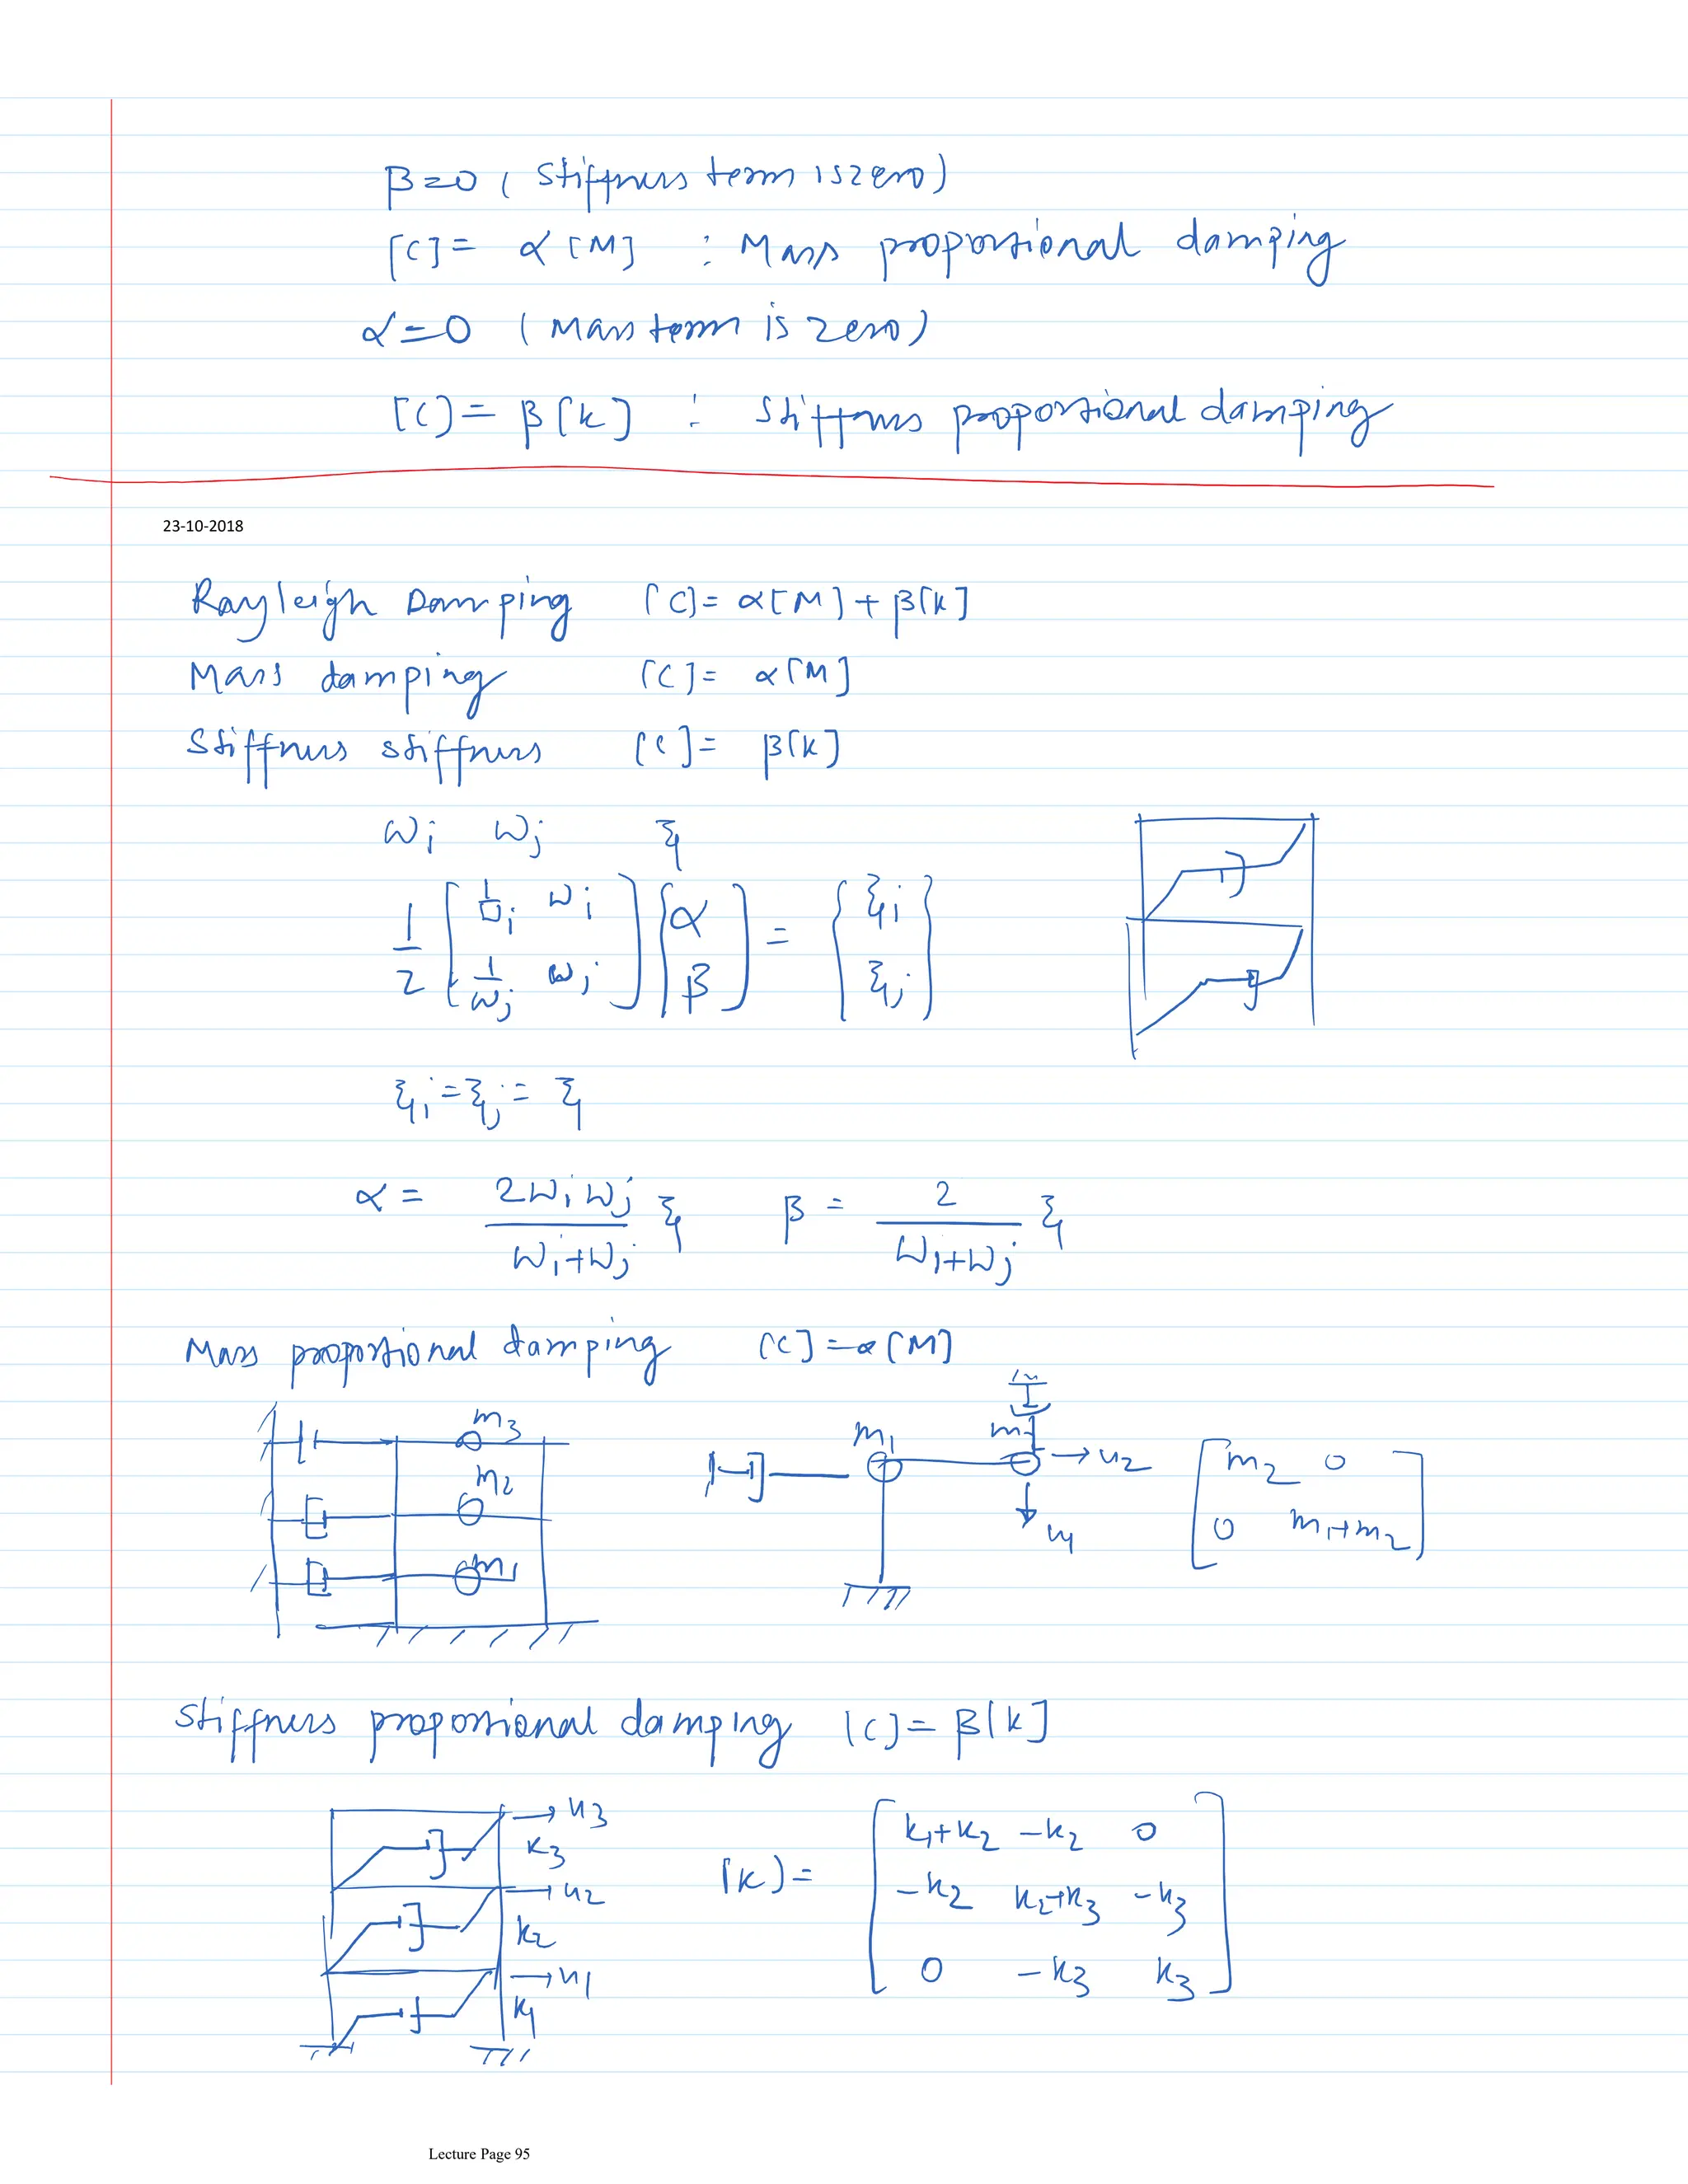 β=0 ( Stiffness term is zero)
[C] = α [M] : Mass proportional damping
α=0 ( Mass term is zero)
[C] = β [k] : Stiffness proportional damping
23-10-2018
Rayleigh Damping [C] = α[M] + β[k]
Mass damping [C] = α[M]
Stiffness stiffness [C] = β[k]
ωi ωj ξ
1/2 [ 1/ωi ωi ; 1/ωj ωj ] { α ; β } = { ξi ; ξj }
ξi = ξj = ξ
α = 2ωiωj / ωi+ωj ξ β = 2 / ωi+ωj ξ
Mass proportional damping [C] = α [M]
m3
m2
m1
m1 m2 → u2
u1
[ m2 0 ; 0 m1+m2 ]
Stiffness proportional damping [C] = β[k]
u3
k3
u2
k2
u1
k1
[k] = [ k1+k2 -k2 0
-k2 k2+k3 -k3
0 -k3 k3 ]
Lecture Page 95